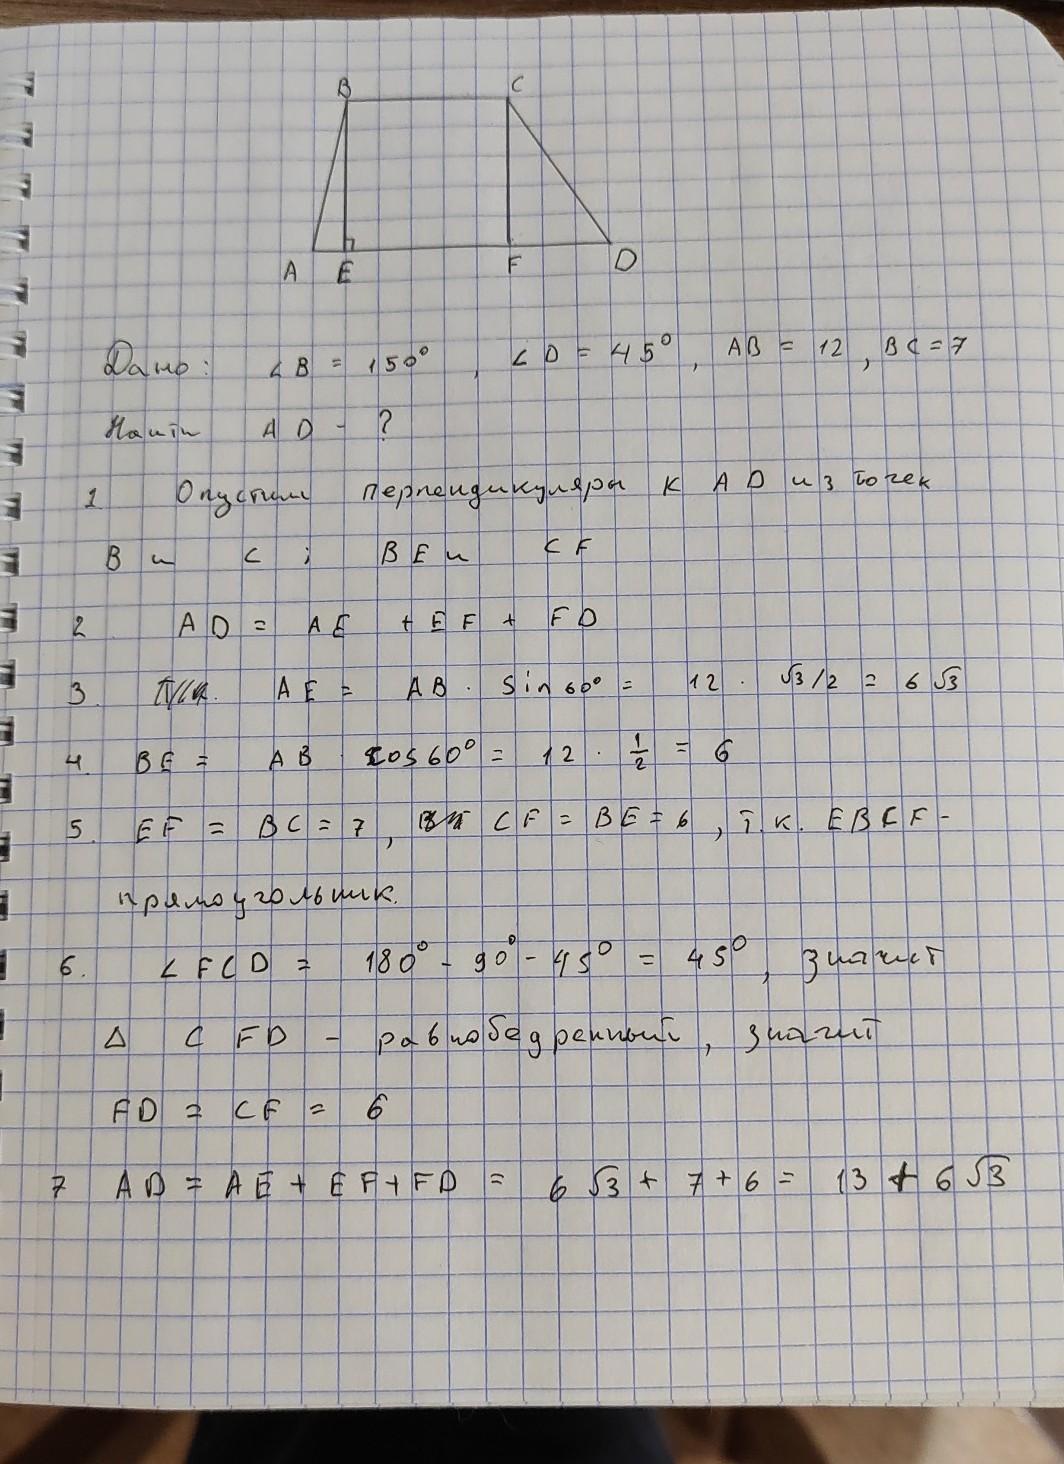 B C
A E F D
Дано: ∠B = 150°, ∠D = 45°, AB = 12, BC = 7
Найти AD - ?
1 Опустим перпендикуляры к AD из точек
B и C ; BE и CF
2 AD = AE + EF + FD
3. AE = AB · Sin60° = 12 · √3/2 = 6√3
4. BE = AB · cos60° = 12 · 1/2 = 6
5. EF = BC = 7, CF = BE = 6, т.к. EBCF -
прямоугольник.
6. ∠FCD = 180° - 90° - 45° = 45°, значит
Δ CFD - равнобедренный, значит
FD = CF = 6
7 AD = AE + EF + FD = 6√3 + 7 + 6 = 13 + 6√3